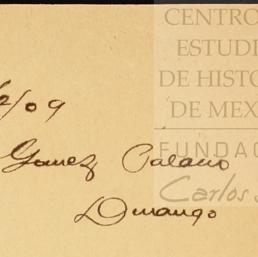 CENTRO
ESTUDI
DE HISTO
DE MEX
FUNDAC
Carlos S
/2/09
Gomez Palacio
Durango